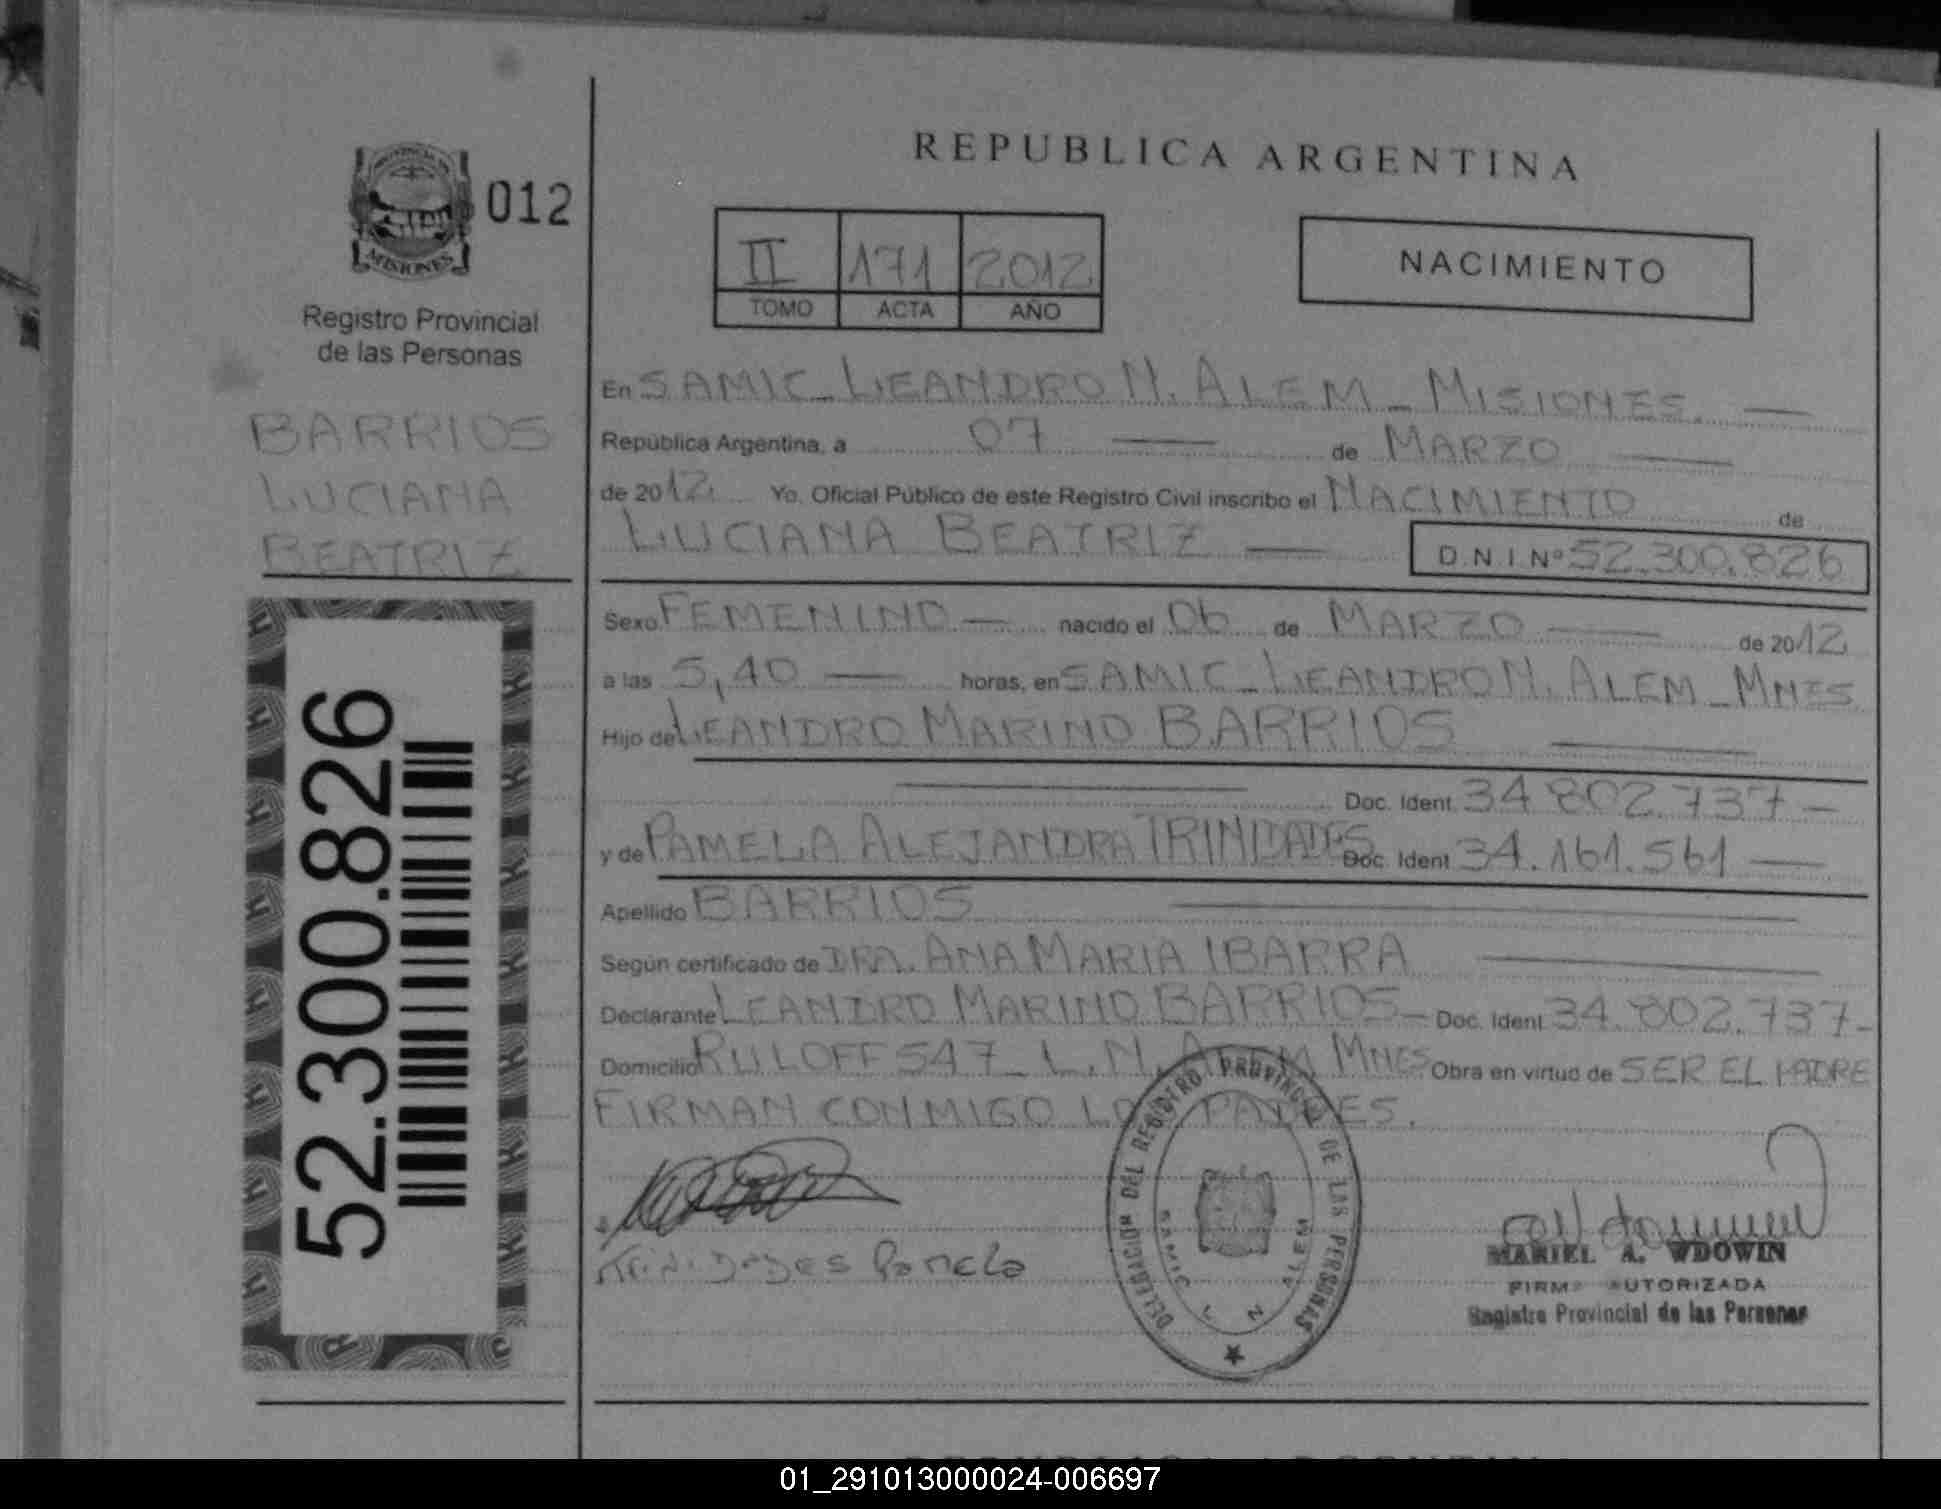 REPUBLICA ARGENTINA
PROVINCIA DE
MISIONES
012
Registro Provincial
de las Personas
BARRIOS
LUCIANA
BEATRIZ
52.300.826
II 171 2012
TOMO ACTA AÑO
NACIMIENTO
En SAMIC_LEANDRO N. ALEM_MISIONES. —
República Argentina, a 07 — de MARZO —
de 2012. Yo, Oficial Público de este Registro Civil inscribo el NACIMIENTO de
LUCIANA BEATRIZ — D.N.I.Nº 52.300.826
Sexo FEMENINO — nacido el 06 de MARZO — de 2012
a las 5,40 — horas, en SAMIC_LEANDRO N. ALEM_MNES
Hijo de LEANDRO MARINO BARRIOS —
— Doc. Ident. 34.802.737 —
y de PAMELA ALEJANDRA TRINIDADES Doc. Ident 34.161.561 —
Apellido BARRIOS —
Según certificado de DRA. ANA MARIA IBARRA —
Declarante LEANDRO MARINO BARRIOS — Doc. Ident 34.802.737-
Domicilio RULOFF 547_L.N. ALEM, MNES Obra en virtud de SER EL PADRE
FIRMAN CONMIGO LOS PADRES.
Trinidades Pamela
DELEGACION DEL REGISTRO PROVINCIAL DE LAS PERSONAS
SAMIC L N ALEM
MARIEL A. WDOWIN
FIRMA AUTORIZADA
Registro Provincial de las Personas
01_291013000024-006697